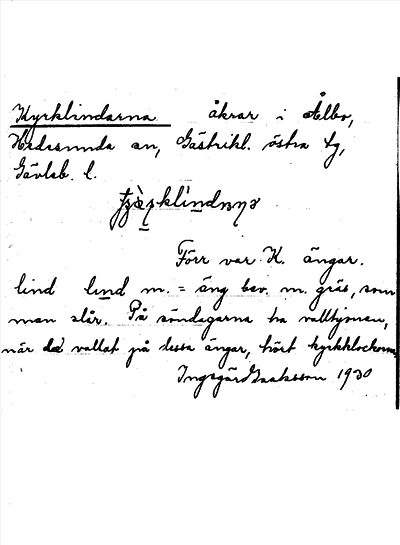 Kyrklindarna åkrar i Ålbo,
Hedesunda sn, Gästrikl. östra tg,
Gävleb. l.
Förr var K. ängar.
lind lind m. = äng bev. m. gräs, som
man slår. På söndagarna ha valltjonen,
när de vallat på dessa ängar, hört kyrkklockorna.
Ingegärd Isaksson 1930